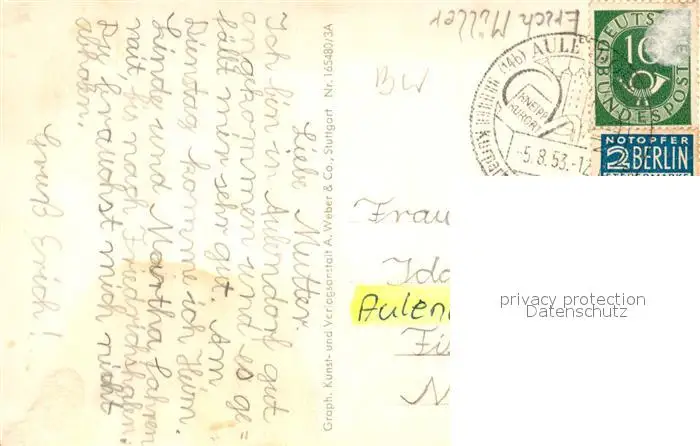 Erich Müller
Liebe Mutter
Ich bin in Aulendorf gut
angekommen und es ge=
fällt mir sehr gut. Am
Dienstag komme ich Heim.
Linde und Martha fahren
mit, bis nach Friedrichshafen.
Du brauchst mich nicht
abholen.
Gruß Erich!
Graph. Kunst- und Verlagsanstalt A. Weber & Co., Stuttgart Nr. 165480/3A
BW
(14b) AULE
KNEIPP
KURORT
-5.8.53.-12
Kneipp
DEUTSCHE
BUNDESPOST
10
NOTOPFER
2 BERLIN
STEUERMARKE
Frau
Ida
Aulen
Fi
N
privacy protection
Datenschutz